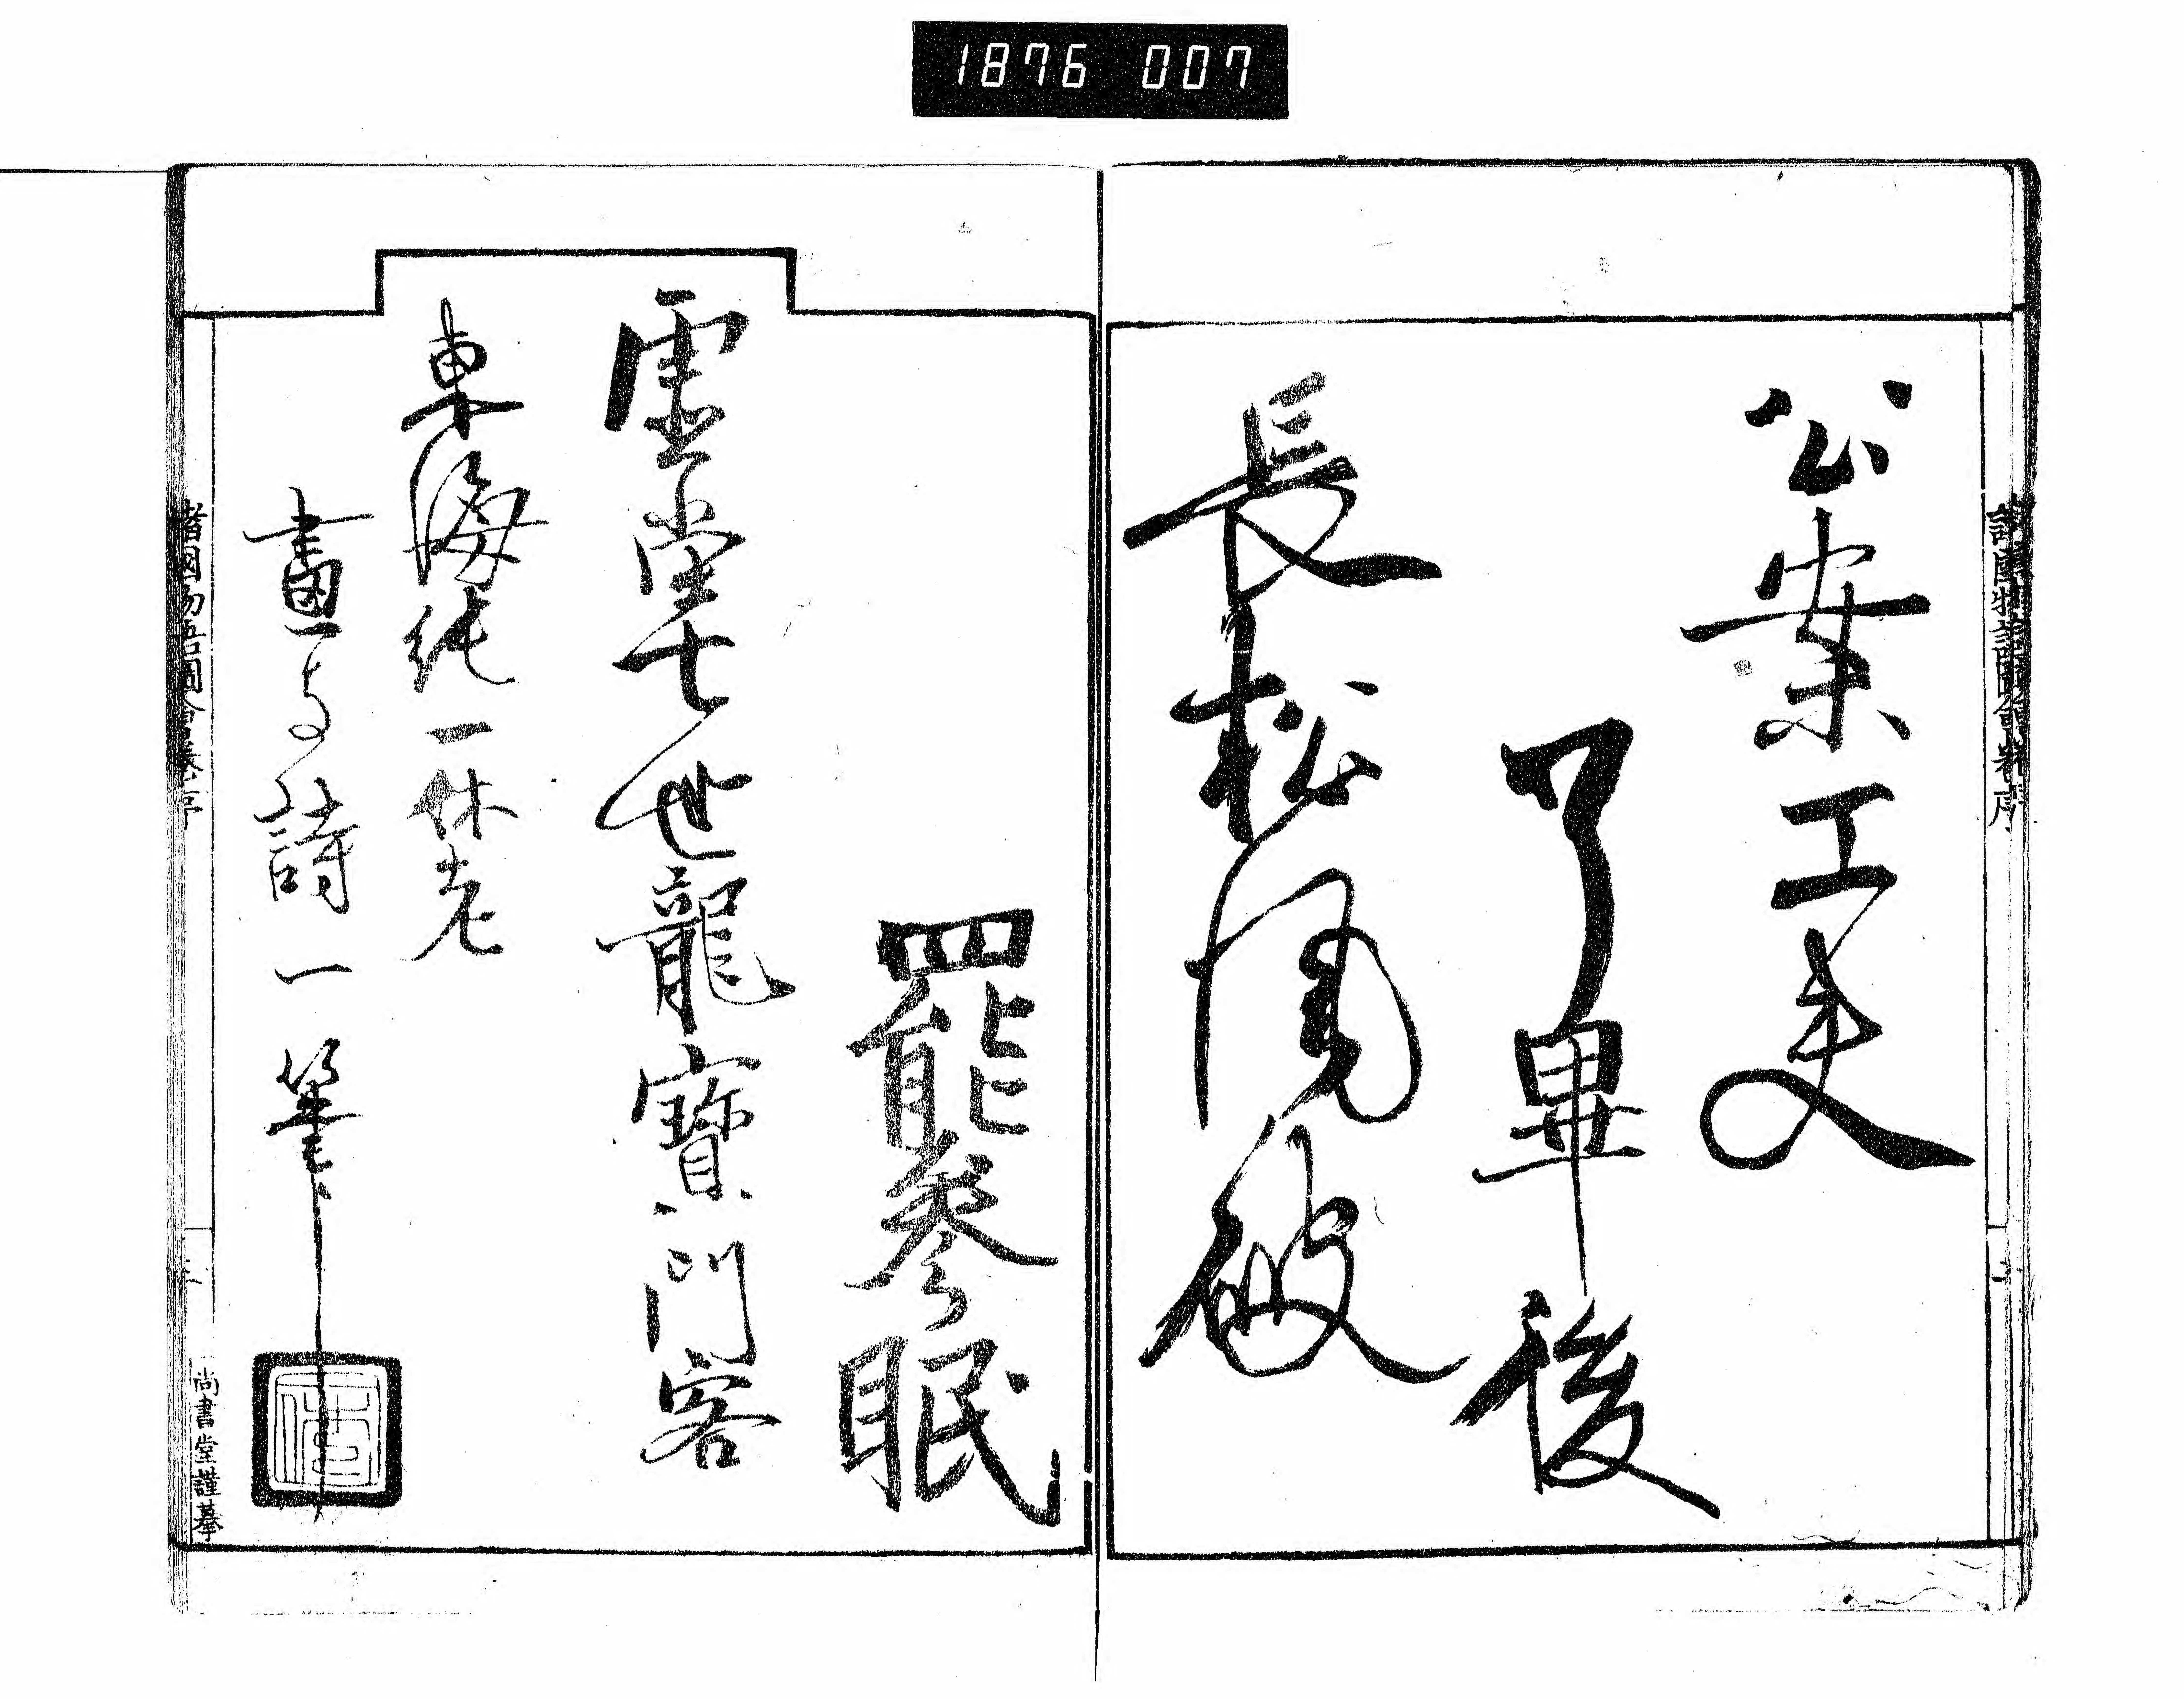 1876 007
諸國物語圖會卷序
公案工夫
了畢後
長松風破
罷參眠
虚堂七世龍寶門客
東海純一休老
畫与詩一筆
諸國物語圖會卷序
三
尚書堂謹摹